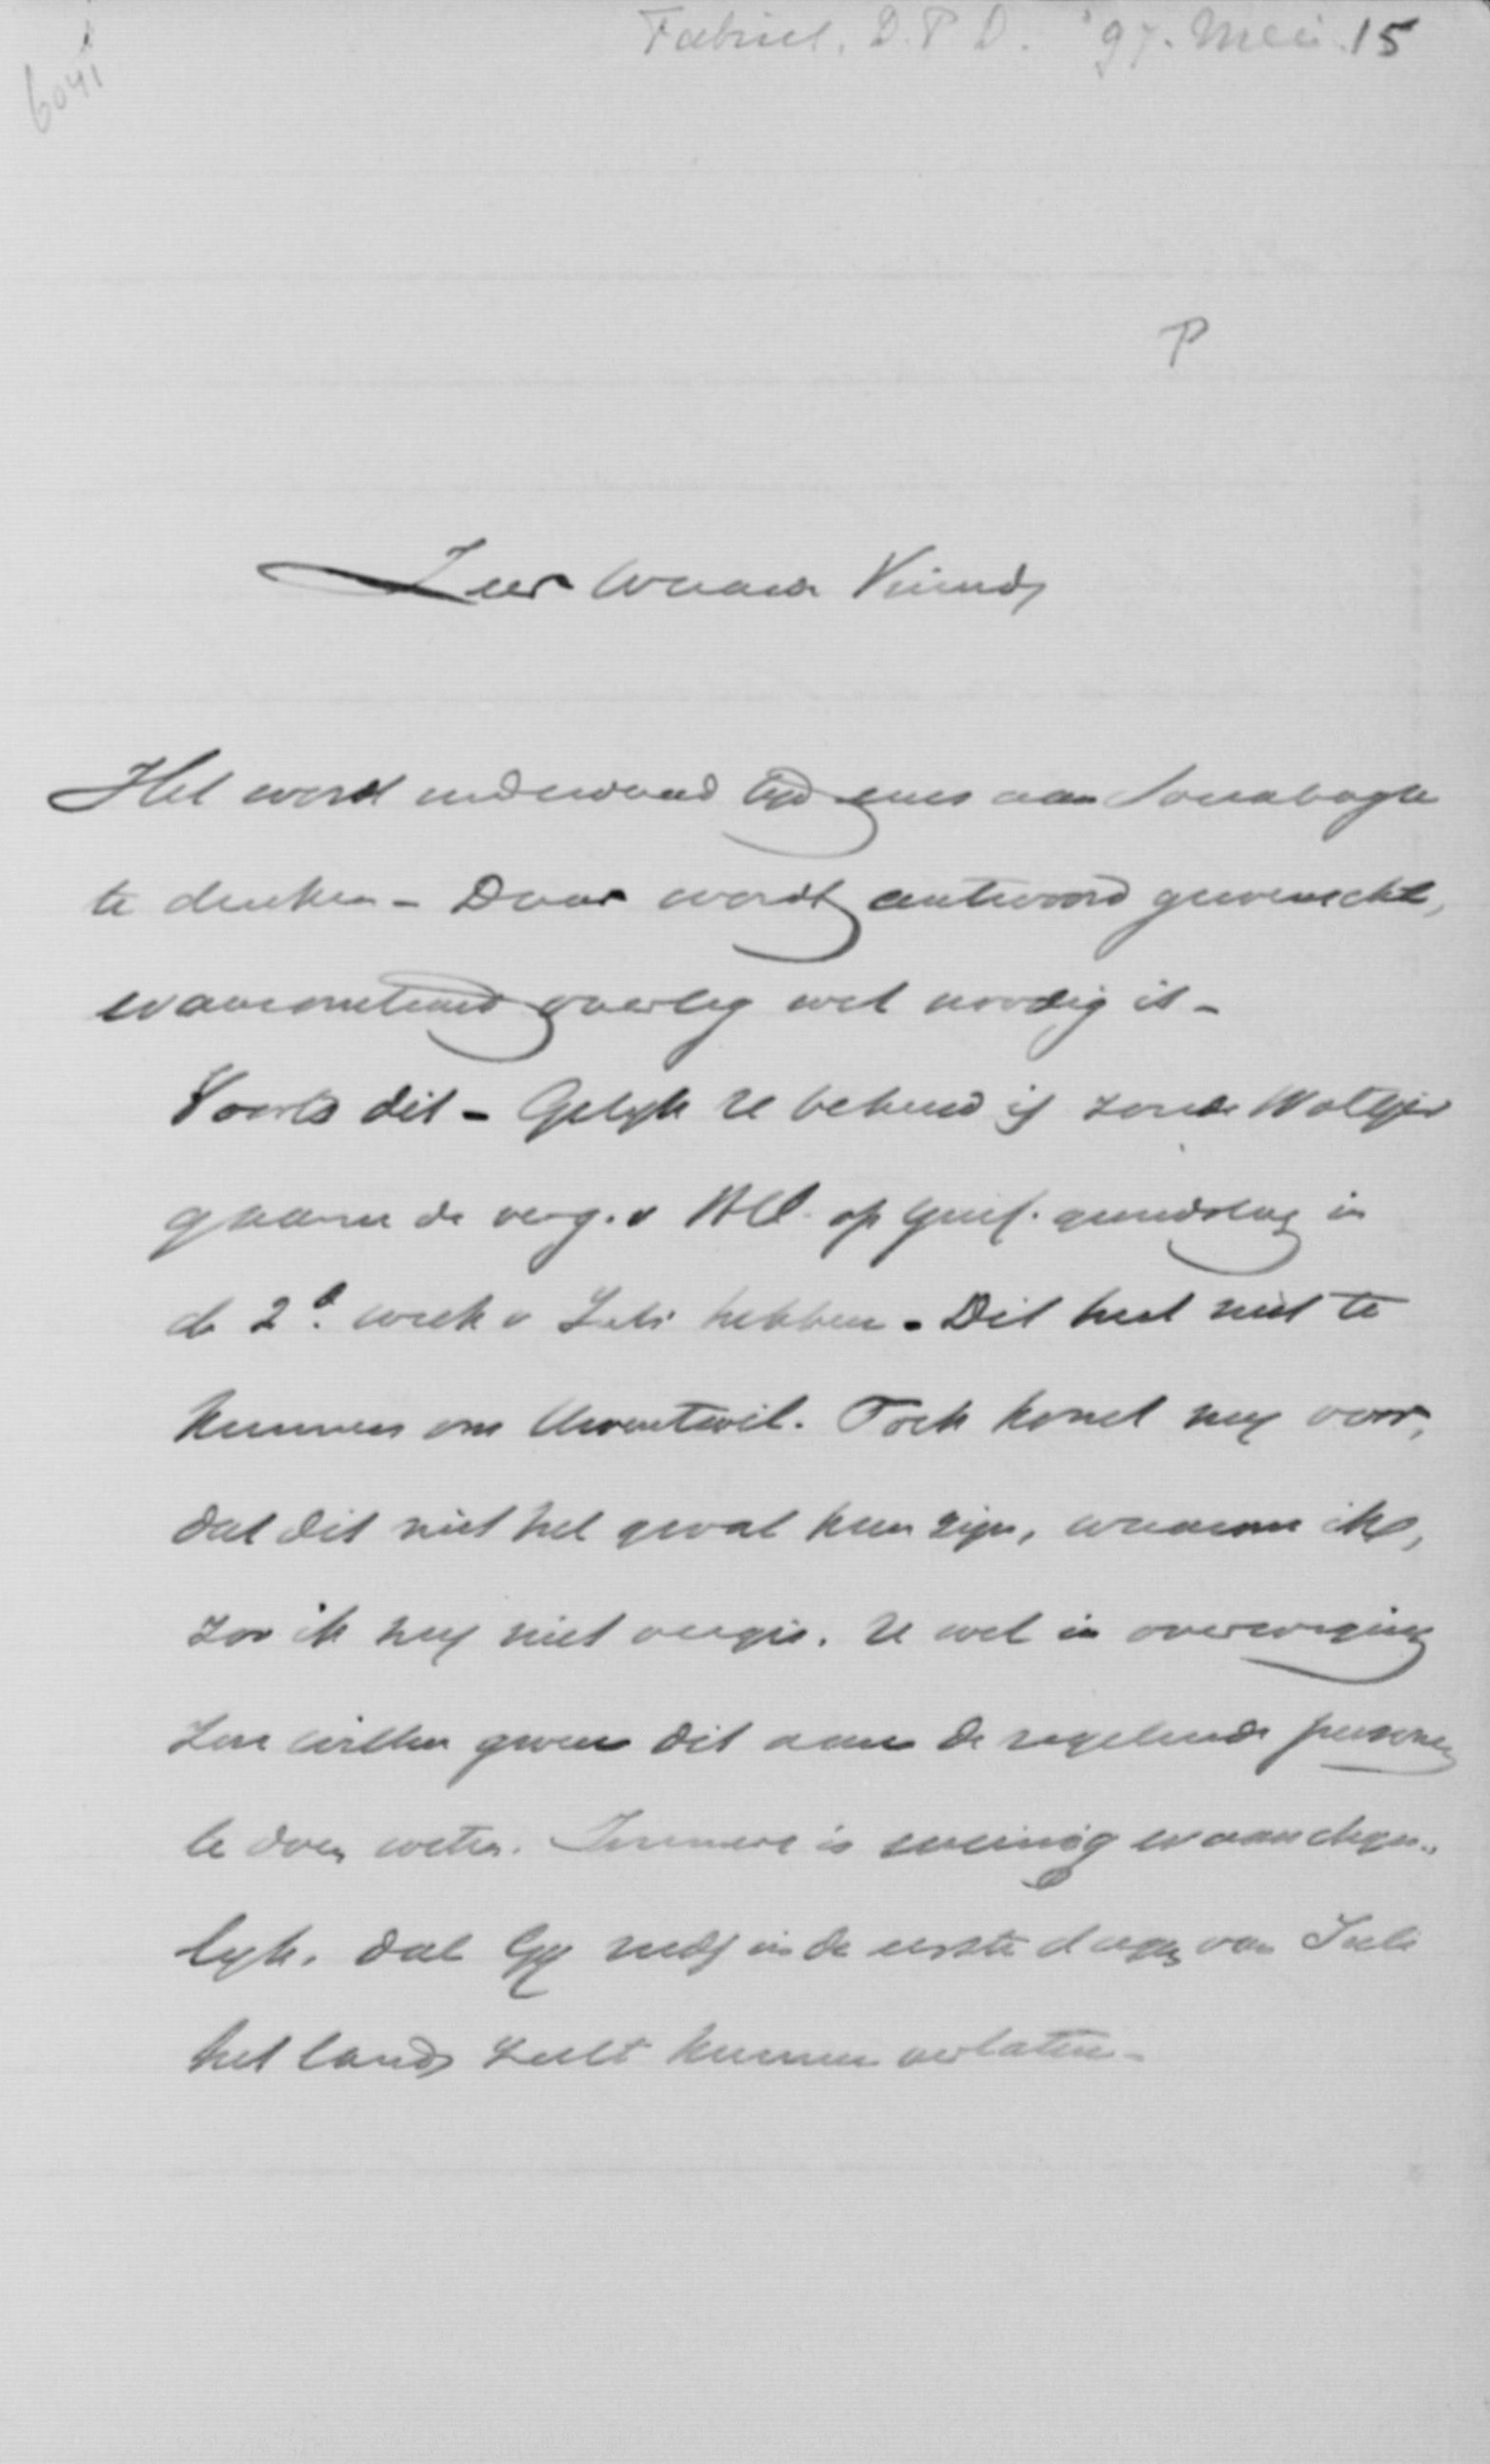 Fabius, D.P.D. '97. Mei 15
6041
P
Zeer Waarde Vriend,
Het word inderdaad tijd eens aan Soerabaya
te denken - Daar wordt antwoord gewenscht,
waaromtrent overleg wel noodig is -
Voorts dit - Gelijk U bekend is zoude Woltjer
gaarne de verg. v H.O. op Geref. grondslag in
de 2e week v Juli hebben. Dit heet niet te
kunnen om Uwentwil. Toch komt mij voor,
dat dit niet het geval kan zijn, waarom ik,
zoo ik mij niet vergis, U wel in overweging
zou willen geven dit aan de regelende personen
te doen weten. Immers is weinig waarschijn-
lijk, dat Gij reeds in de eerste dagen van Juli
het land zult kunnen verlaten -